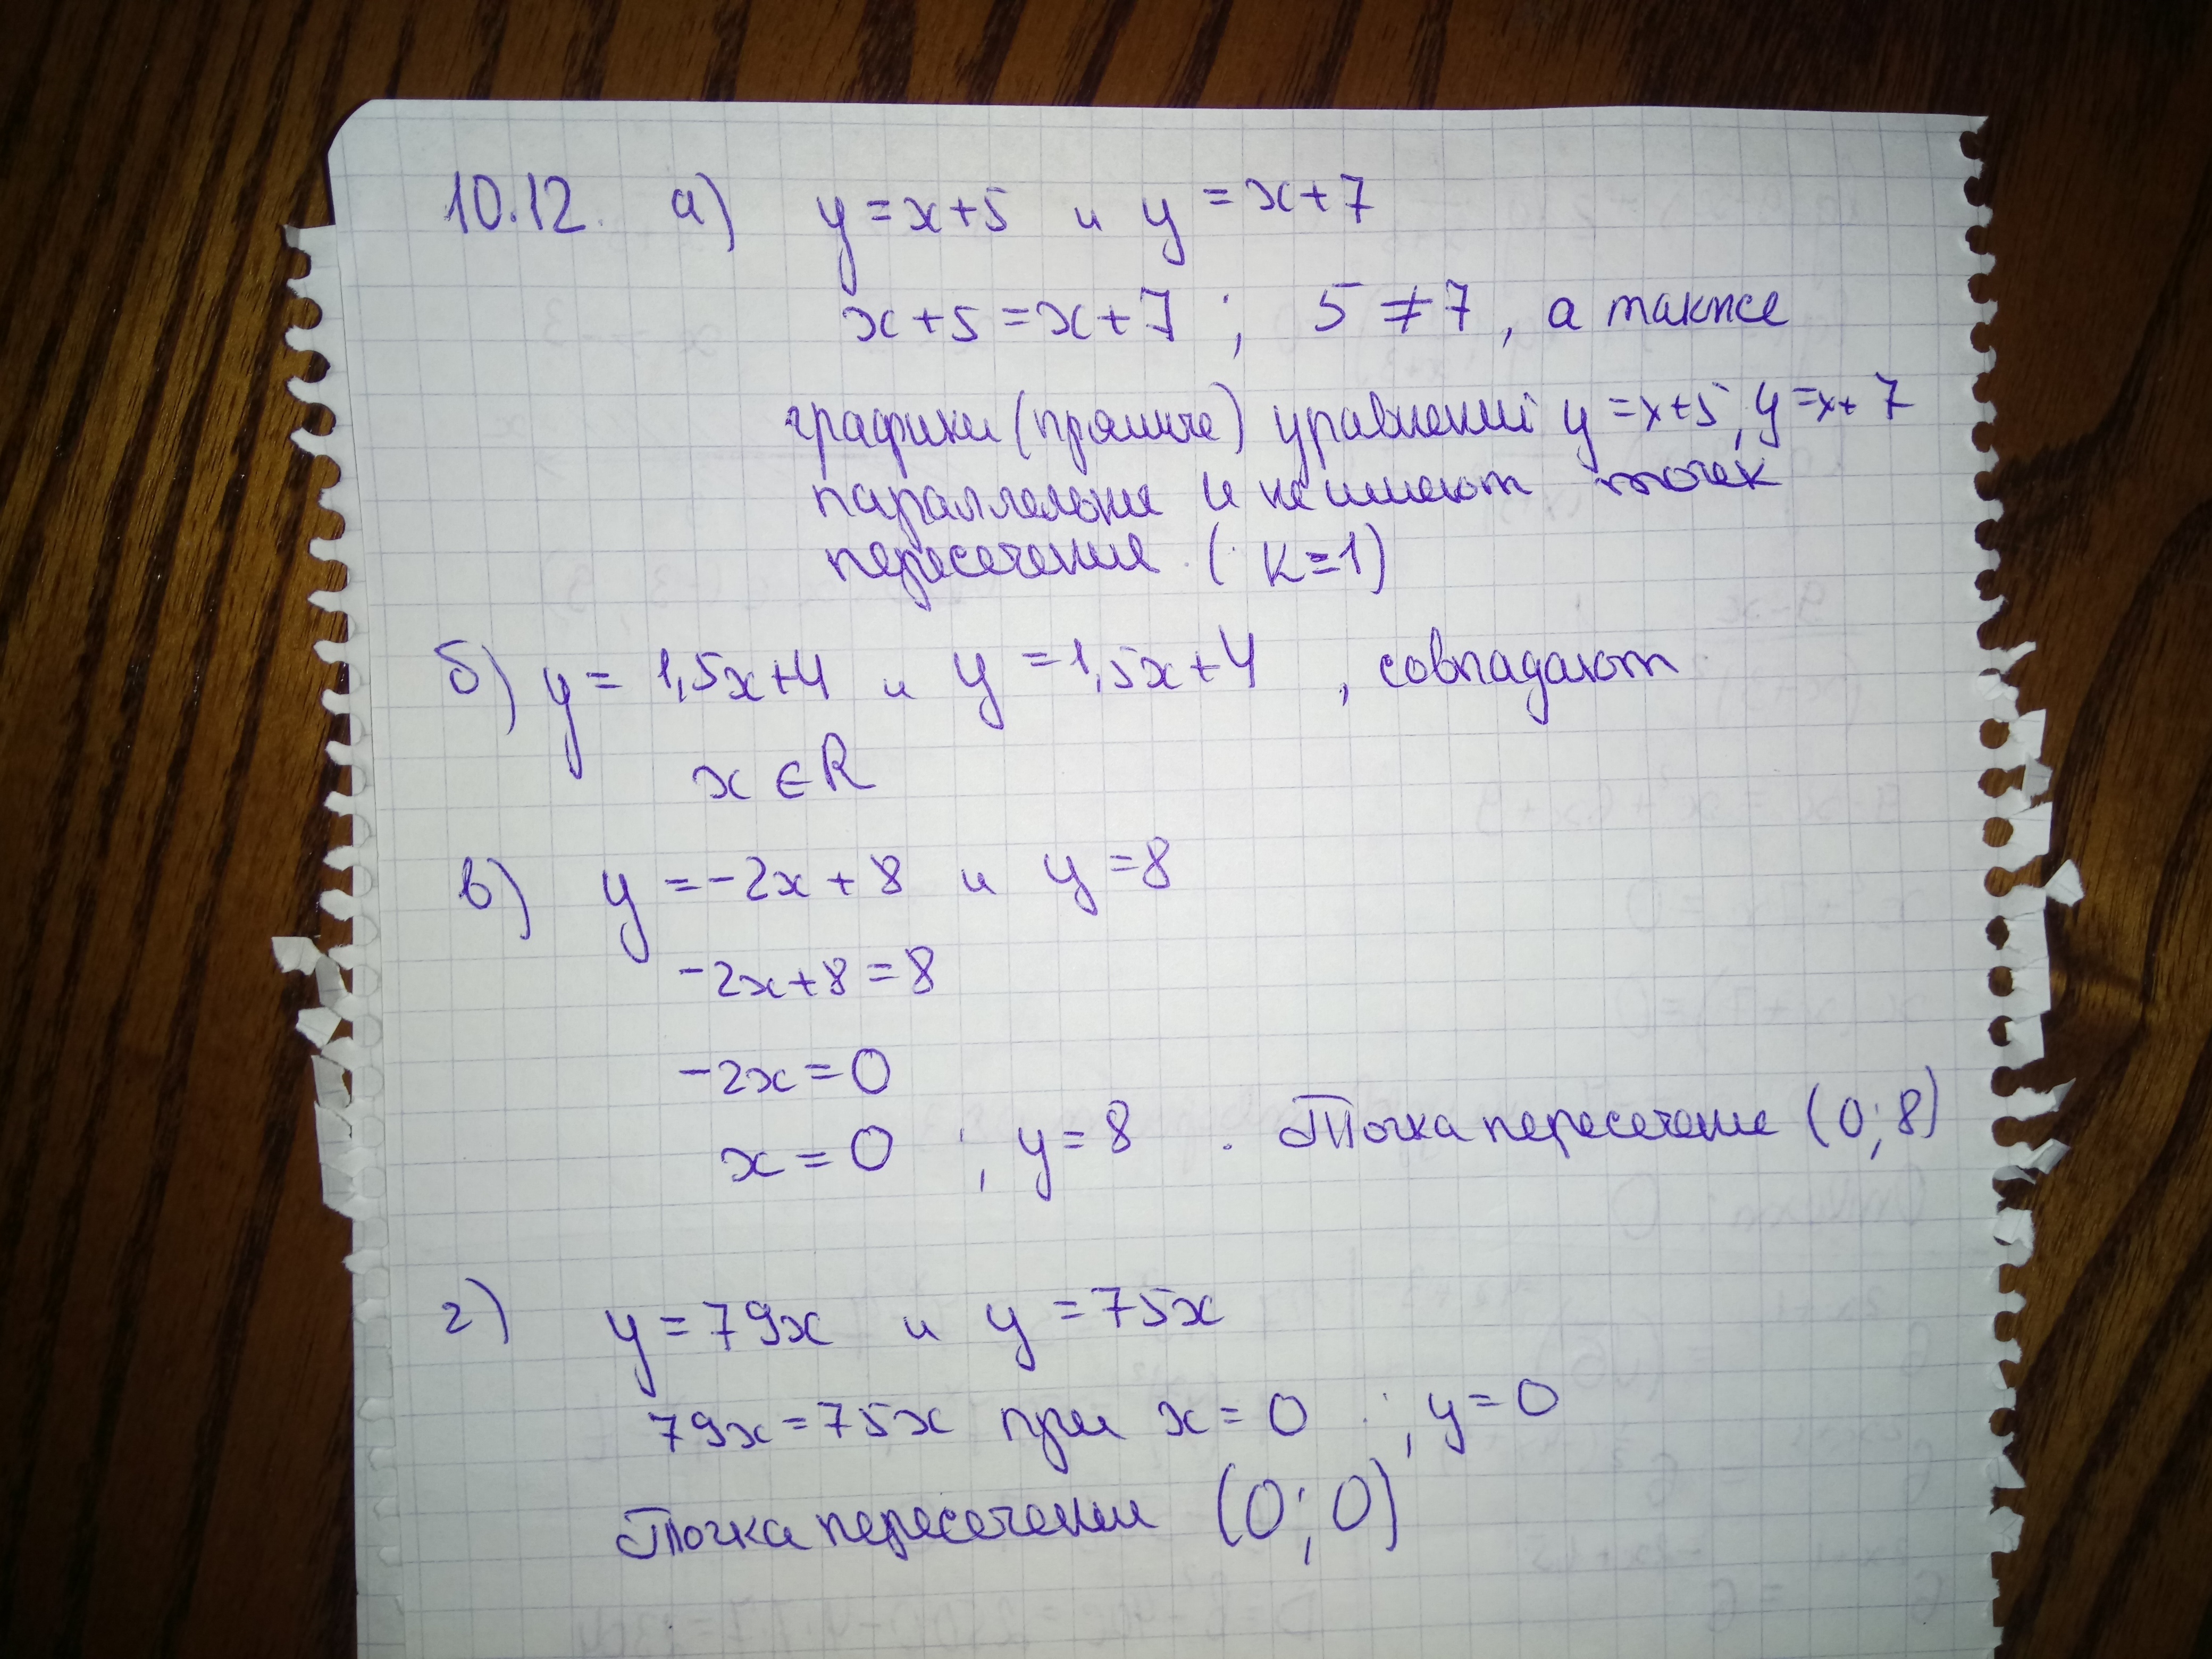 10.12. а) y = x+5 и y = x+7
x+5 = x+7 ; 5 ≠ 7, а также
графики (прямые) уравнений y = x+5, y = x+7
параллельны и не имеют точек
пересечения ( k=1)
б) y = 1,5x+4 и y = 1,5x+4 , совпадают
x ∈ R
в) y = -2x + 8 и y = 8
-2x+8 = 8
-2x = 0
x = 0 ; y = 8 . Точка пересечения (0; 8)
г) y = 79x и y = 75x
79x = 75x при x = 0 ; y = 0
Точка пересечения (0; 0)